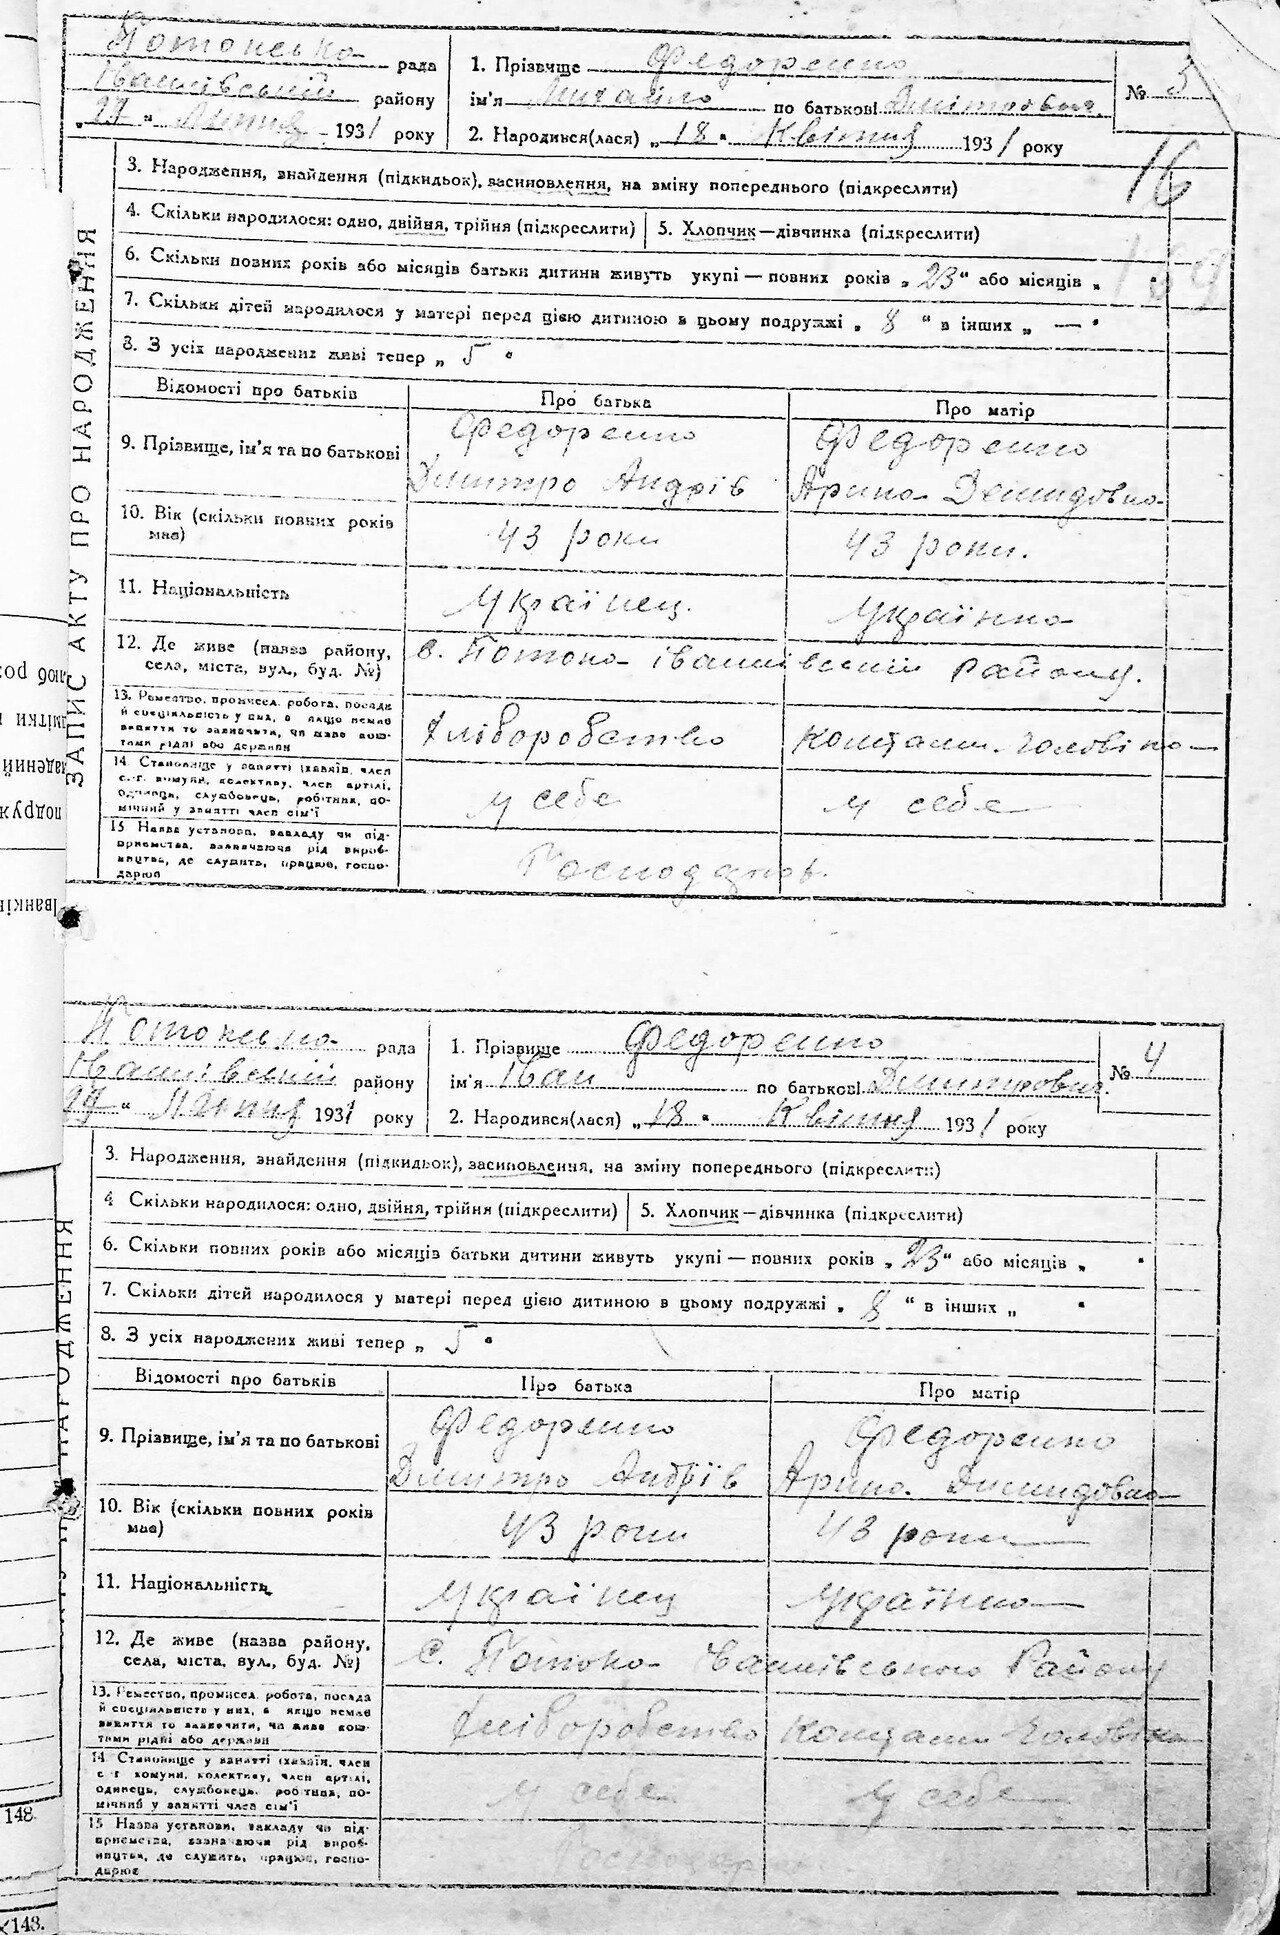 Потокська рада
Іванківський району
„27“ Липня 1931 року
1. Прізвище Федоренко
ім'я Михайло по батькові Дмітрович
2. Народився(лася) „18“ Квітня 1931 року
№ 3
16
ЗАПИС АКТУ ПРО НАРОДЖЕННЯ
3. Народження, знайдення (підкидьок), засиновлення, на зміну попереднього (підкреслити)
4. Скільки народилося: одно, двійня, трійня (підкреслити)
5. Хлопчик—дівчинка (підкреслити)
6. Скільки повних років або місяців батьки дитини живуть укупі — повних років „23“ або місяців „
7. Скільки дітей народилося у матері перед цією дитиною в цьому подружжі „ 8 “ в інших „ — “
8. З усіх народжених живі тепер „ 5 “
Відомості про батьків
Про батька
Про матір
9. Прізвище, ім'я та по батькові
Федоренко
Дмитро Андрів
Федоренко
Арина Демидовна
10. Вік (скільки повних років має)
43 роки
43 роки.
11. Національність
Українец.
Українка
12. Де живе (назва району, села, міста, вул., буд. №)
с. Потока Іванківський Району.
13. Ремество, промисел, робота, посада
й спеціяльність у них, а якщо немає
заняття то зазначити, чи живе кош-
тами рідні або держави
Хліборобство
Коштами Чоловіка
14. Становище у занятті (хазяїн, член
с.-г. комуни, колективу, член артілі,
одинець, службовець, робітник, по-
мічний у занятті член сім'ї
у себе
у себе
15 Назва установи, закладу чи під-
приємства, зазначаючи рід вироб-
ництва, де служить, працює, госпо-
дарює
Потокська рада
Іванківський району
27 “ Липня 1931 року
1. Прізвище Федоренко
ім'я Іван по батькові Дмитрович.
2. Народився(лася) „18“ Квітня 1931 року
№ 4
НАРОДЖЕННЯ
3. Народження, знайдення (підкидьок), засиновлення, на зміну попереднього (підкреслити)
4 Скільки народилося: одно, двійня, трійня (підкреслити)
5. Хлопчик—дівчинка (підкреслити)
6. Скільки повних років або місяців батьки дитини живуть укупі — повних років „23“ або місяців „ “
7. Скільки дітей народилося у матері перед цією дитиною в цьому подружжі „ 8 “ в інших „ “
8. З усіх народжених живі тепер „ 5 “
Відомості про батьків
Про батька
Про матір
9. Прізвище, ім'я та по батькові
Федоренко
Дмитро Андріїв
Федоренко
Арина Димидовна
10. Вік (скільки повних років має)
43 роки
43 роки
11. Національність
Українец
Українка
12. Де живе (назва району, села, міста, вул., буд. №)
С. Потока Іванківського Району
13. Ремество, промисел, робота, посада
й спеціяльність у них, а якщо немає
заняття то зазначити, чи живе кош-
тами рідні або держави
Хліборобство
Коштами Чоловіка
14. Становище у занятті (хазяїн, член
с.-г. комуни, колективу, член артілі,
одинець, службовець, робітник, по-
мічний у занятті член сім'ї
у себе
у себе
15 Назва установи, закладу чи під-
приємства, зазначаючи рід вироб-
ництва, де служить, працює, госпо-
дарює
148.
148.